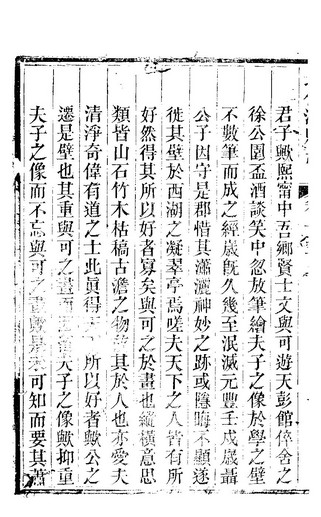 君子歟熙甯中吾鄉賢士文與可遊天彭館倅舍之
徐公園盃酒談笑中忽放筆繪夫子之像於學之壁
不數筆而成之經歲旣久幾至泯滅元豐壬戌歲譸
公子因守是郡惜其瀟灑神妙之跡或隱晦不顯遂
徙其壁於西湖之凝翠亭焉嗟夫天下之人皆有所
好然得其所以好者寡矣與可之於畫也縱橫意思
類皆山石竹木枯槁古澹之物 其於人也亦愛夫
清淨奇偉有道之士此眞得 所以好者歟公之
遷是壁也其重與可之畫而 夫子之像歟抑重
夫子之像而不忘與可之畫歟是未可知而要其蕭